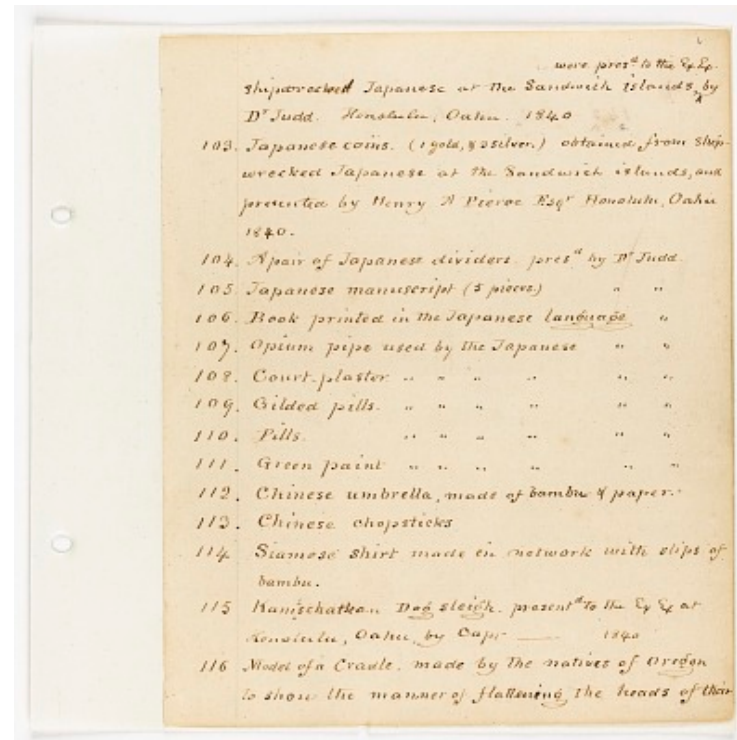 were pres^d to the Ex. Ex.
shipwrecked Japanese at the Sandwich islands, by
D^r Judd. Honolulu, Oahu. 1840
103. Japanese coins. (1 gold, & 3 silver.) obtained from ship-
wrecked Japanese at the Sandwich islands, and
presented by Henry A Pierce Esq^r Honolulu, Oahu
1840.
104. A pair of Japanese dividers pres^d by D^r Judd
105 Japanese manuscript (5 pieces.) " "
106. Book printed in the Japanese language "
107. Opium pipe used by the Japanese " "
108. Court-plaster " " " " " "
109. Gilded pills. " " " " " "
110. Pills. " " " " " "
111. Green paint " " " " " "
112. Chinese umbrella, made of bambu & paper.
113. Chinese chopsticks
114. Siamese shirt made in network with slips of
bambu.
115 Kamschatkan Dog sleigh. present^d to the Ex Ex at
Honolulu, Oahu, by Cap^t —— 1840
116 Model of a Cradle, made by the natives of Oregon
to show the manner of flattening the heads of their